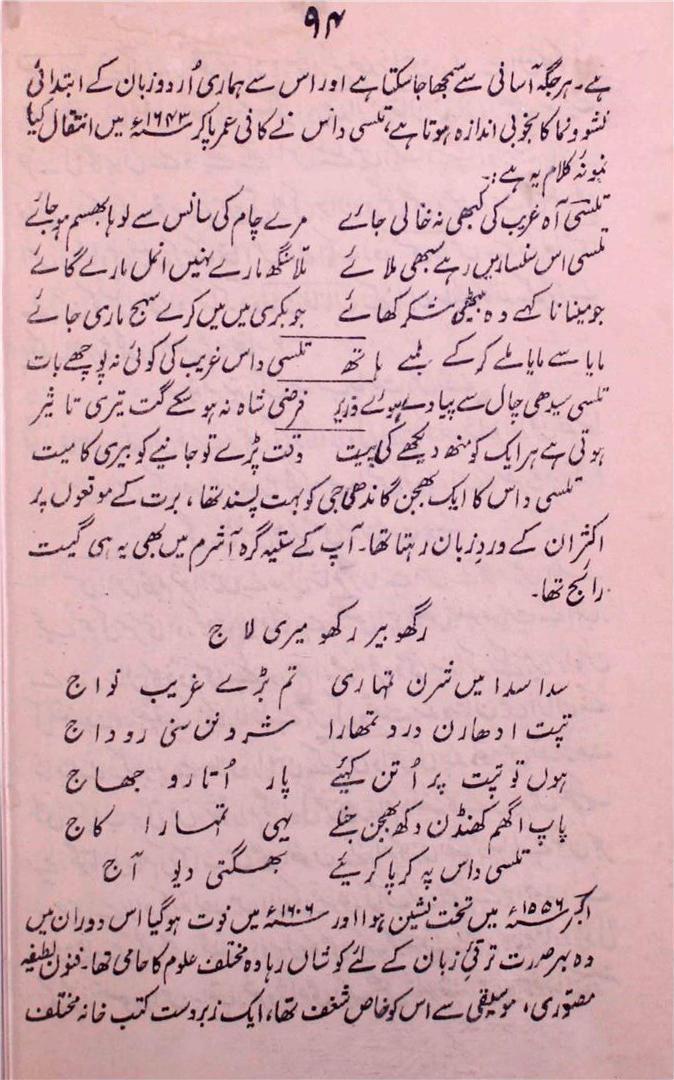 ۹۴
ہے۔ ہر جگہ آسانی سے سمجھا جاسکتا ہے اور اس سے ہماری اُردو زبان کے ابتدائی
نشوونما کا بخوبی اندازہ ہوتا ہے، تلسی داس نے کافی عمر پاکر ۱۶۴۳ء میں انتقال کیا
نمونۂ کلام یہ ہے:۔
تلسی آہ غریب کی کبھی نہ خالی جائے مرے چام کی سانس سے لوہا بھسم ہوجائے
تلسی اس سنسار میں رہے سبھی ملائے
جو مینا نا کہے وہ بیٹھی شکر کھائے جو بکری میں میں کرے سہج ماری جائے
مایا سے مایا ملے کر کے لمبے ہاتھ تلسی داس غریب کی کوئی نہ پوچھے بات
تلسی سیدھی چال سے پیادے ہوئے وزیر فرضی شاہ نہ ہو سکے گت تیری تاثیر
ہوتی ہے ہر ایک کو منھ دیکھے کی پیت وقت پڑے تو جانیے کو بیری کا میت
تلسی داس کا ایک بھجن گاندھی جی کو بہت پسند تھا، برت کے موقعوں پر
اکثر ان کے ورد زبان رہتا تھا۔ آپ کے ستیہ گرہ آشرم میں بھی یہ ہی گیت
رائج تھا۔
رگھوبیر رکھو میری لاج
سدا سدا میں شرن تمہاری تم بڑے غریب نواج
تپت ادھارن درد تمھارا شرونن سنی روداج
ہوں تو تپت پر اُتن کہیے پار اُتارو جھاج
پاپ اگھم کھنڈن دکھ بھجن جلے یہی تمہارا کاج
تلسی داس پہ کرپا کریئے بھگتی دیو آج
اکبر ۱۵۵۶ء میں تخت نشین ہوا اور ۱۶۰۶ء میں فوت ہوگیا اس دوران میں
وہ بہرصورت ترقیٔ زبان کے لئے کوشاں رہا وہ مختلف علوم کا حامی تھا۔ فنون لطیفہ
مصوری، موسیقی سے اس کو خاص شغف تھا، ایک زبردست کتب خانہ مختلف